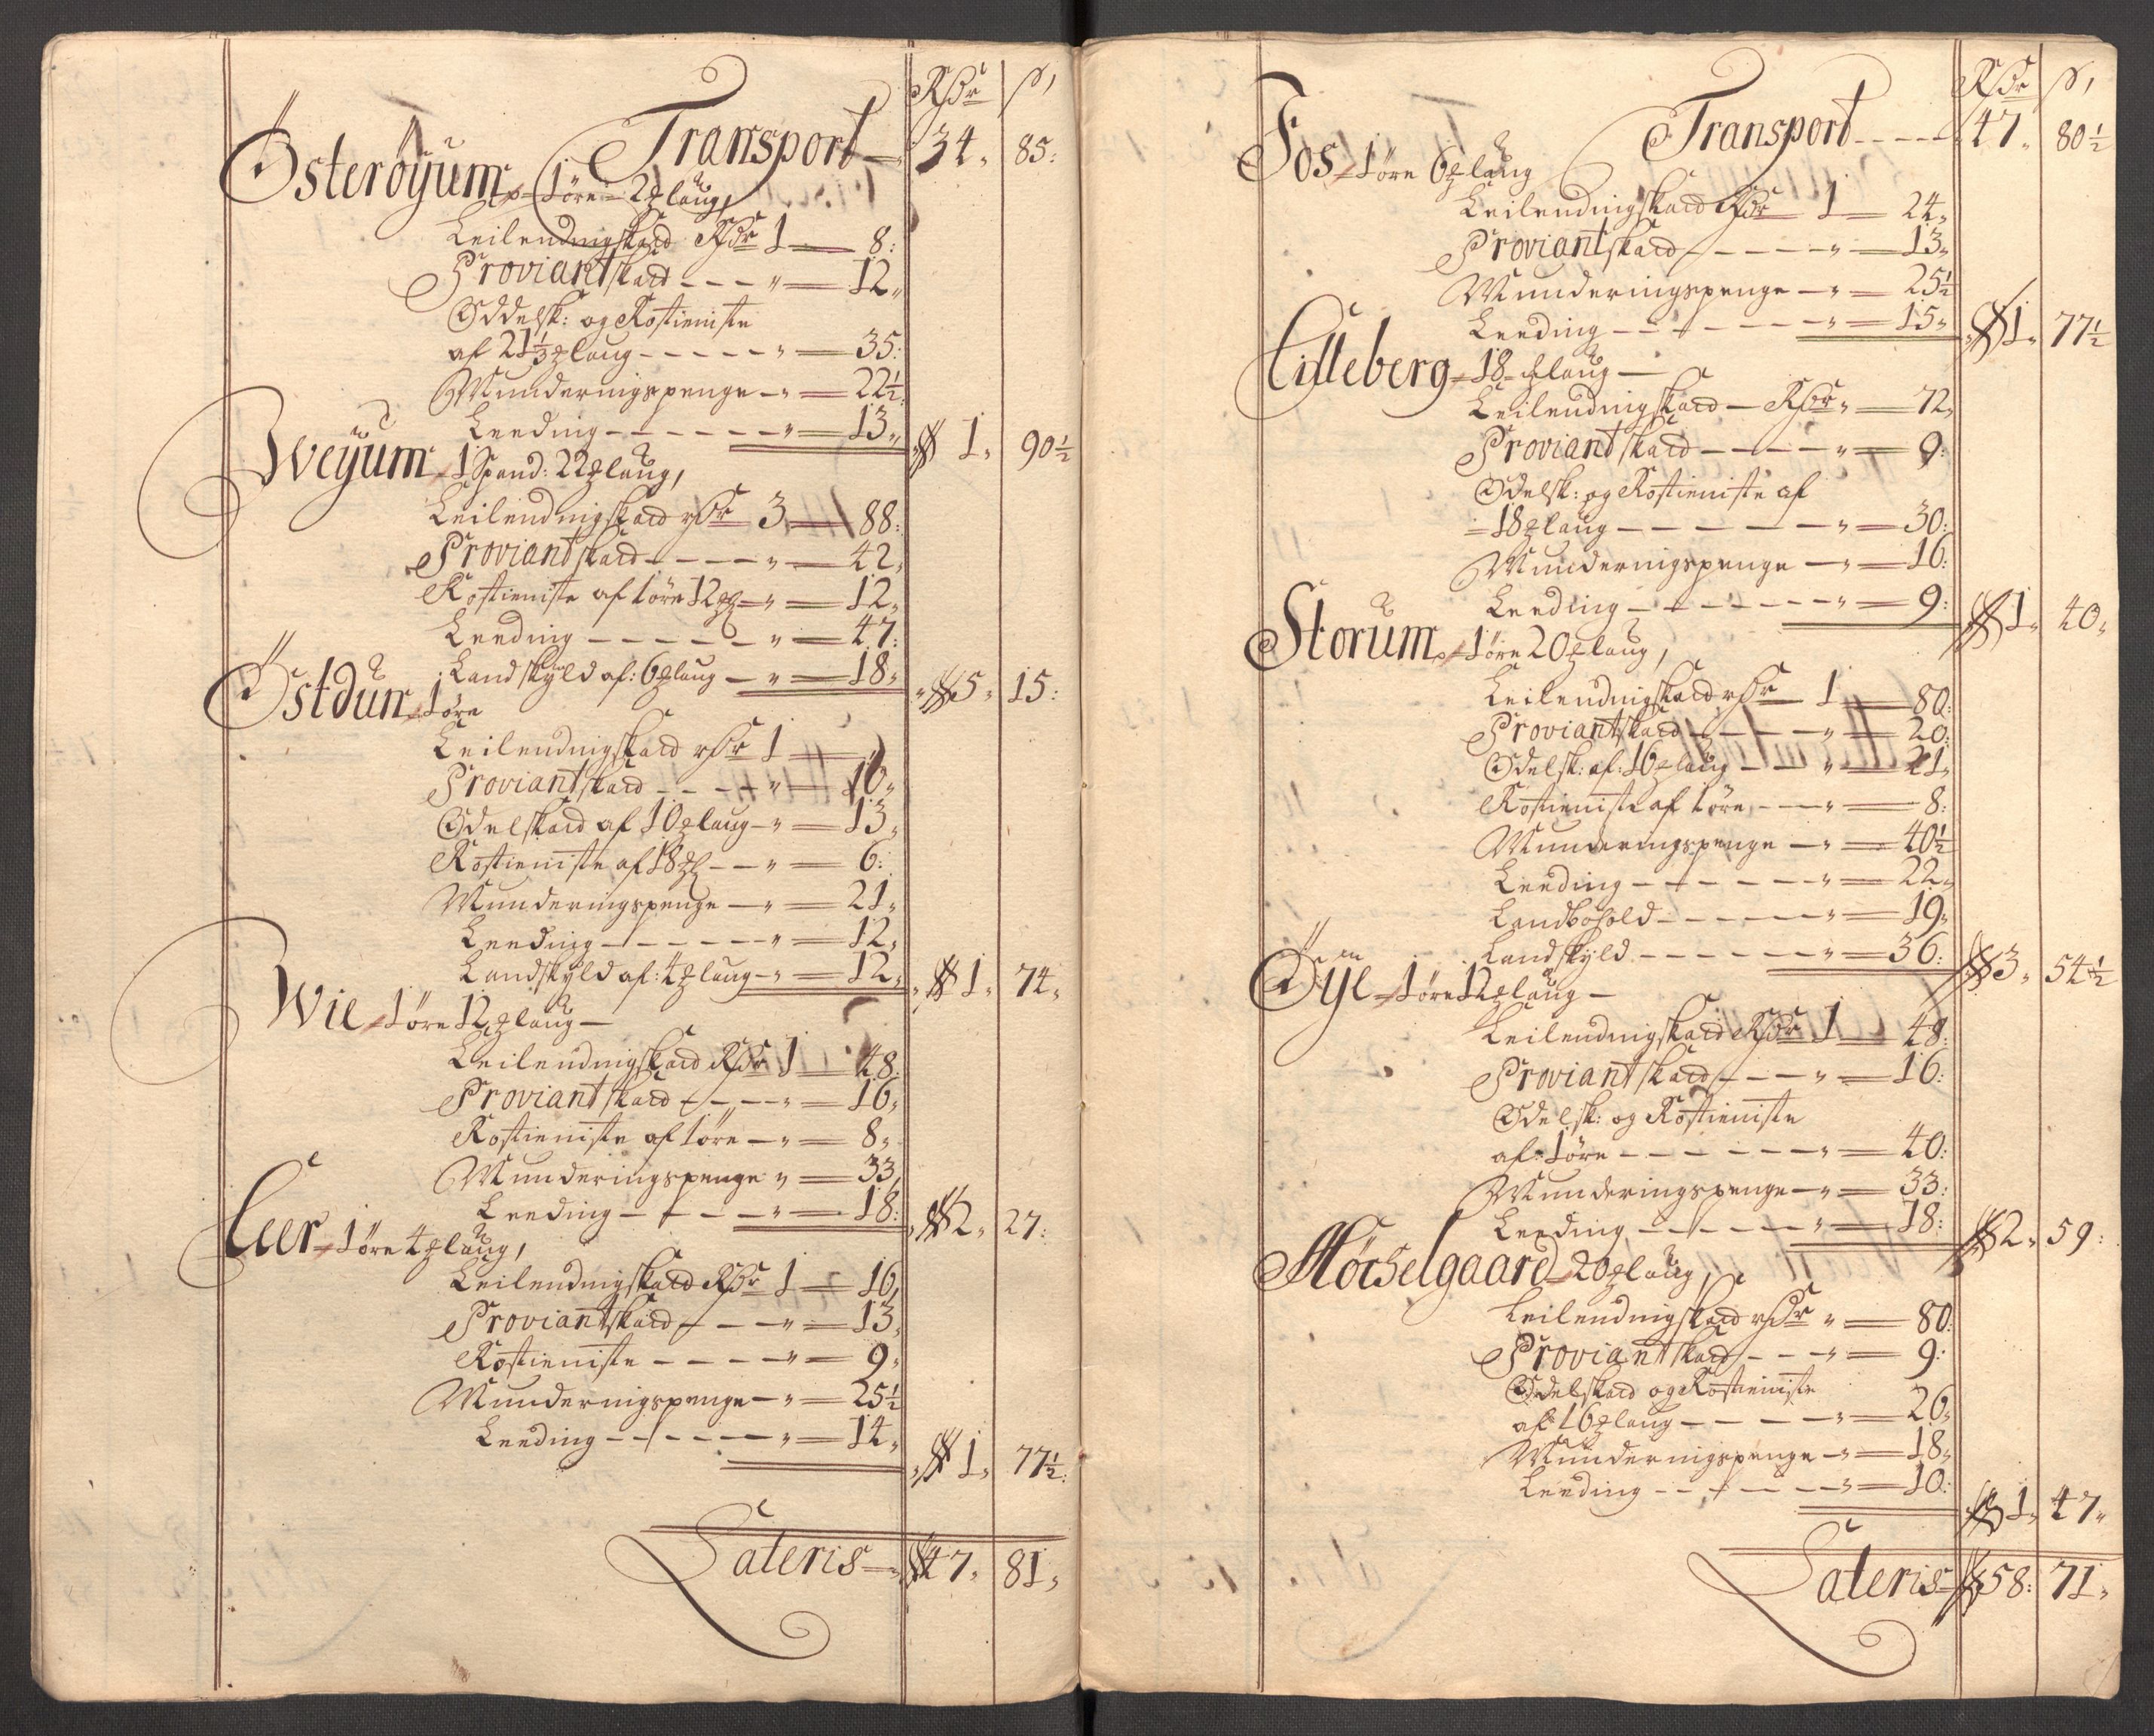 Rdr ß,
Transport 34. 85:
Österøÿum 1 øre 2 laug,
Leilendingskatt Rdr 1 8:
Proviantskatt 12,
Oddelsk: og Rostieniste
af 21⅓ laug 35:
Munderingspenge 22½
Leeding 13, 1. 90½
Weÿum 1 Spand: 22 laug,
Leilendingskatt Rdr 3 88:
Proviantskatt 42,
Rostieniste af 1 øre 12 12,
Leeding 47:
Landskÿld af: 6 laug 18, 5. 15:
Östdun 1 øre
Leilendingskatt Rdr 1
Proviantskatt 10,
Odelskatt af 10 laug 13,
Rostieniste af 18 6:
Munderingspenge 21,
Leeding 12,
Landskÿld af: 4 laug 12, 1. 74,
Wie 1 øre 12 laug
Leilendingskatt Rdr 1 48:
Proviantskatt 16,
Rostieniste af 1 øre 8,
Munderingspenge 33,
Leeding 18: 2. 27:
Leer 1 øre 4 laug,
Leilendingskatt Rdr 1 16,
Proviantskatt 13,
Rostieniste 9,
Munderingspenge 25½
Leeding 14, 1. 77½
Lateris 47. 81,
Rdr ß,
Transport 47. 80½
Fos 1 øre 6 laug
Leilendingskatt Rdr 1 24,
Proviantskatt 13,
Munderingspenge 25½
Leeding 15, 1. 77½
Lilleberg 18 laug
Leilendingskatt Rdr 72,
Proviantskatt 9:
Odelsk: og Rostieniste af
18 laug 30:
Munderingspenge 16:
Leeding 9: 1. 40,
Storum 1 øre 20 laug,
Leilendingskatt Rdr 1 80:
Proviantskatt 20:
Odelsk: af: 16 laug 21,
Rostieniste af 1 øre 8:
Munderingspenge 40½
Leeding 22,
Landbohold 19,
Landskÿld 36: 3. 54½
Öÿe 1 øre 12 laug
Leilendingskatt Rdr 1 48:
Proviantskatt 16:
Odelsk: og Rostieniste
af: 1 øre 40:
Munderingspenge 33:
Leeding 18: 2. 59:
Mörchelgaard 20 laug,
Leilendingskatt Rdr 80:
Proviantskatt 9:
Odelskatt og Rostieniste
af 16 laug 26,
Munderingspenge 18,
Leeding 10: 1. 47,
Lateris 58: 71,